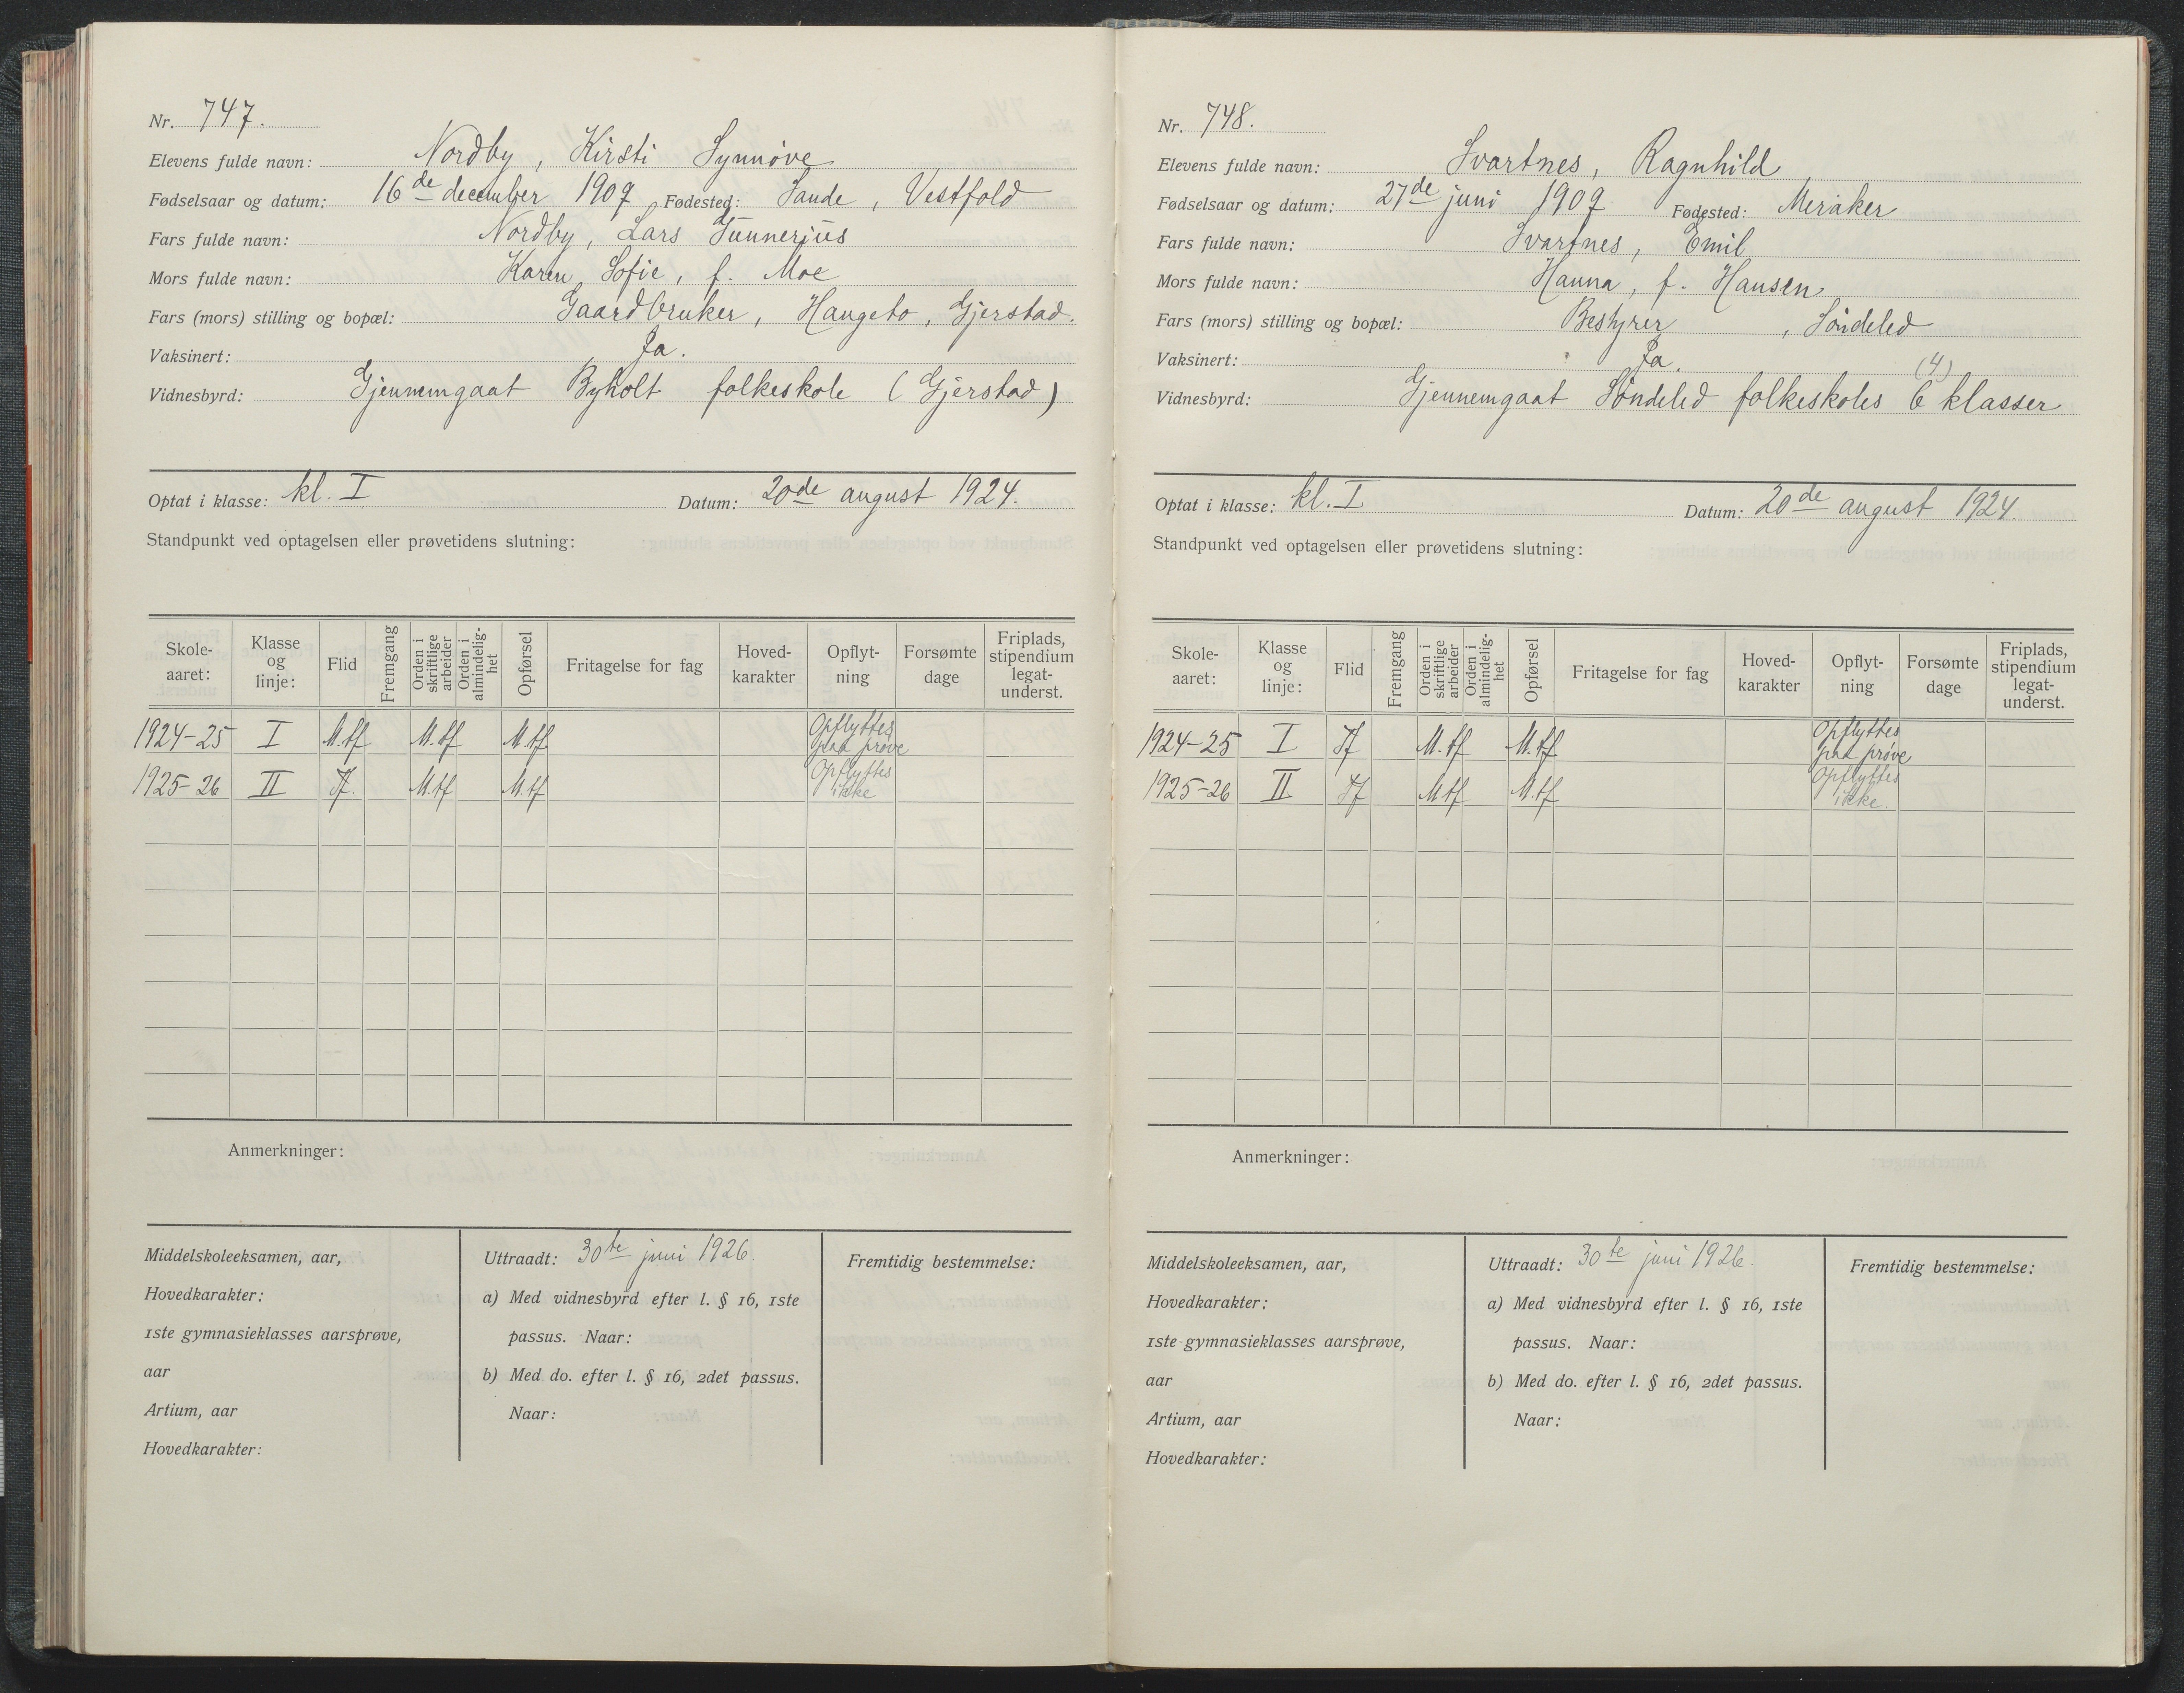 Nr. 747.
Elevens fulde navn: Nordby, Kirsti Synnøve
Fødselsaar og datum: 16de december 1909 Fødested: Sande, Vestfold
Fars fulde navn: Nordby, Lars Gunnerius
Mors fulde navn: Karen Sofie, f. Moe
Fars (mors) stilling og bopæl: Gaardbruker, Haugeto, Gjerstad.
Vaksinert: Ja.
Vidnesbyrd: Gjennemgaat Byholt folkeskole (Gjerstad)
Optat i klasse: kl. I Datum: 20de august 1924.
Standpunkt ved optagelsen eller prøvetidens slutning:
Skole-aaret: Klasse og linje: Flid Fremgang Orden i skriftlige arbeider Orden i almindelig-het Opførsel Fritagelse for fag Hoved-karakter Opflyt-ning Forsømte dage Friplads, stipendium legat-underst.
1924-25 I M.tf M.tf M.tf Opflyttes paa prøve
1925-26 II Tf. M.tf M.tf Opflyttes ikke
Anmerkninger:
Middelskoleeksamen, aar,
Hovedkarakter:
1ste gymnasieklasses aarsprøve,
aar
Artium, aar
Hovedkarakter:
Uttraadt: 30te juni 1926.
a) Med vidnesbyrd efter l. § 16, 1ste
passus. Naar:
b) Med do. efter l. § 16, 2det passus.
Naar:
Fremtidig bestemmelse:
Nr. 748.
Elevens fulde navn: Svartnes, Ragnhild
Fødselsaar og datum: 27de juni 1909 Fødested: Meraker
Fars fulde navn: Svartnes, Emil
Mors fulde navn: Hanna, f. Hansen
Fars (mors) stilling og bopæl: Bestyrer, Søndeled
Vaksinert: Ja.
(4)
Vidnesbyrd: Gjennemgaat Søndeled folkeskoles 6 klasser
Optat i klasse: kl. I Datum: 20de august 1924.
Standpunkt ved optagelsen eller prøvetidens slutning:
Skole-aaret: Klasse og linje: Flid Fremgang Orden i skriftlige arbeider Orden i almindelig-het Opførsel Fritagelse for fag Hoved-karakter Opflyt-ning Forsømte dage Friplads, stipendium legat-underst.
1924-25 I Tf M.tf M.tf Opflyttes paa prøve
1925-26 II Tf M.tf M.tf Opflyttes ikke.
Anmerkninger:
Middelskoleeksamen, aar,
Hovedkarakter:
1ste gymnasieklasses aarsprøve,
aar
Artium, aar
Hovedkarakter:
Uttraadt: 30te juni 1926.
a) Med vidnesbyrd efter l. § 16, 1ste
passus. Naar:
b) Med do. efter l. § 16, 2det passus.
Naar:
Fremtidig bestemmelse: